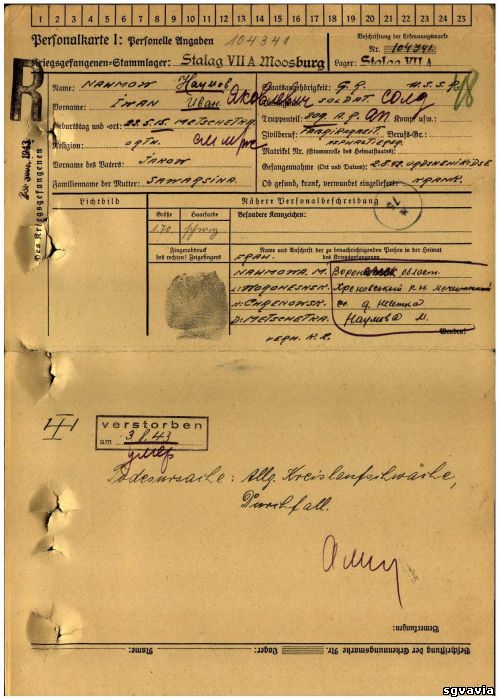 1 2 3 4 5 6 7 8 9 10 11 12 13 14 15 16 17 18 19 20 21 22 23 24 25
Personalkarte I: Personelle Angaben
104341
Kriegsgefangenen-Stammlager: Stalag VII A Moosburg
Beschriftung der Erkennungsmarke
Nr. 104341
Lager: Stalag VII A
R
Des Kriegsgefangenen
Name: NAHMOW Наумов
Vorname: IWAN Иван Яковлевич
Geburtstag und -ort: 23.5.15. METSCHETKA
Religion: ORTH.
Vorname des Vaters: JAKOW
Familienname der Mutter: SAWAQSINA.
Staatsangehörigkeit: U.S.S.R.
SOLDAT. солд
18
Truppenteil: 809 A.R. АП Komp. usw.:
Zivilberuf: Berufs-Gr.:
Matrikel Nr. (Stammrolle des Heimatstaates):
Gefangennahme (Ort und Datum):
Ob gesund, krank, verwundet eingeliefert:
KRANK.
Lichtbild
Nähere Personalbeschreibung
Größe
Haarfarbe
Besondere Kennzeichen:
1.70 schwarz
Fingerabdruck
des rechten! Zeigefingers
Name und Anschrift der zu benachrichtigenden Person in der Heimat
des Kriegsgefangenen
FRAU.
NAHMOWA M.
WORONESHSK.
CHRENOWSK.
D. METSCHETKA.
Хреновский р-н
Наумова М.
Wenden!
verstorben
am 3.8.43
умер
Todesursache: Allg. Kreislaufschwäche,
Durchfall.
Bemerkungen:
Beschriftung der Erkennungsmarke Nr.
Lager:
Name:
sgvavia